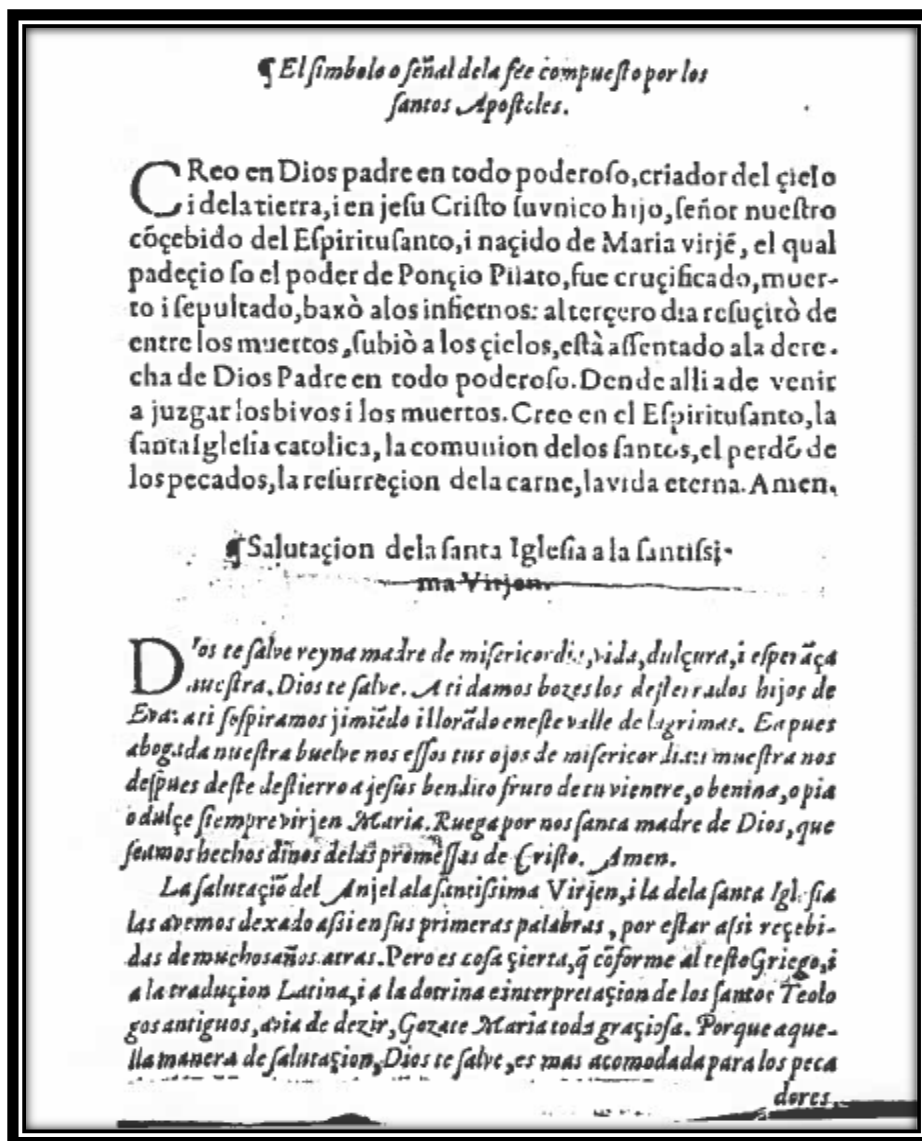 ¶ El ſimbolo o ſeñal dela fée compueſto por los
ſantos Apoſtoles.
CReo en Dios padre en todo poderoſo,criador del çielo
i dela tierra,i en jeſu Criſto ſuvnico hijo,ſeñor nueſtro
cõçebido del Eſpirituſanto,i naçido de Maria virjẽ, el qual
padeçio ſo el poder de Ponçio Pilato,fue cruçificado,muer-
to i ſepultado,baxò alos infiernos: al terçero dia reſuçitò de
entre los muertos,ſubiò a los çielos,eſtà aſſentado ala dere-
cha de Dios Padre en todo poderoſo.Dende alli a de venir
a juzgar los bivos i los muertos. Creo en el Eſpirituſanto,la
ſanta Igleſia catolica, la comunion delos ſantos,el perdõ de
los pecados,la reſurreçion dela carne,la vida eterna. Amen.
¶ Salutaçion dela ſanta Igleſia a la ſantiſsi-
ma Virjen.
DIos te ſalve reyna madre de miſericordia,vida,dulçura,i eſperãça
nueſtra. Dios te ſalve. A ti damos bozes los deſterrados hijos de
Eva: a ti ſoſpiramos jimiẽdo i llorãdo eneſte valle de lagrimas. Ea pues
abogada nueſtra buelve nos eſſos tus ojos de miſericordia: i mueſtra nos
deſpues deſte deſtierro a jeſus bendito fruto de tu vientre, o benina, o pia
o dulçe ſiempre virjen Maria. Ruega por nos ſanta madre de Dios, que
ſeamos hechos dinos delas promeſſas de Criſto. Amen.
La ſalutaçiõ del Anjel ala ſantiſſima Virjen, i la dela ſanta Igleſia
las avemos dexado aſſi en ſus primeras palabras, por eſtar aſsi reçebi-
das de muchos años atras. Pero es coſa çierta, q̃ cõforme al teſto Griego, i
a la traduçion Latina, i a la dotrina e interpretaçion de los ſantos Teolo
gos antiguos, avia de dezir, Gozate Maria toda graçioſa. Porque aque-
lla manera de ſalutaçion, Dios te ſalve, es mas acomodada para los peca
dores.